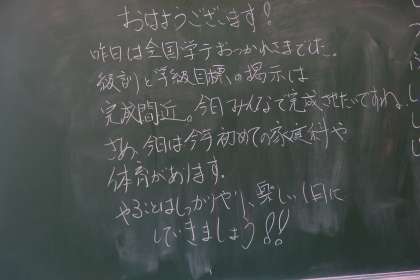 おはようございます!
昨日は全国学テおつかれさまでした。
級訓と学級目標の掲示は
完成間近。今日みんなで完成させたいですね。
さぁ、今日は今年初めての家庭科や
体育があります。
やることはしっかりやり、楽しい1日に
していきましょう!!